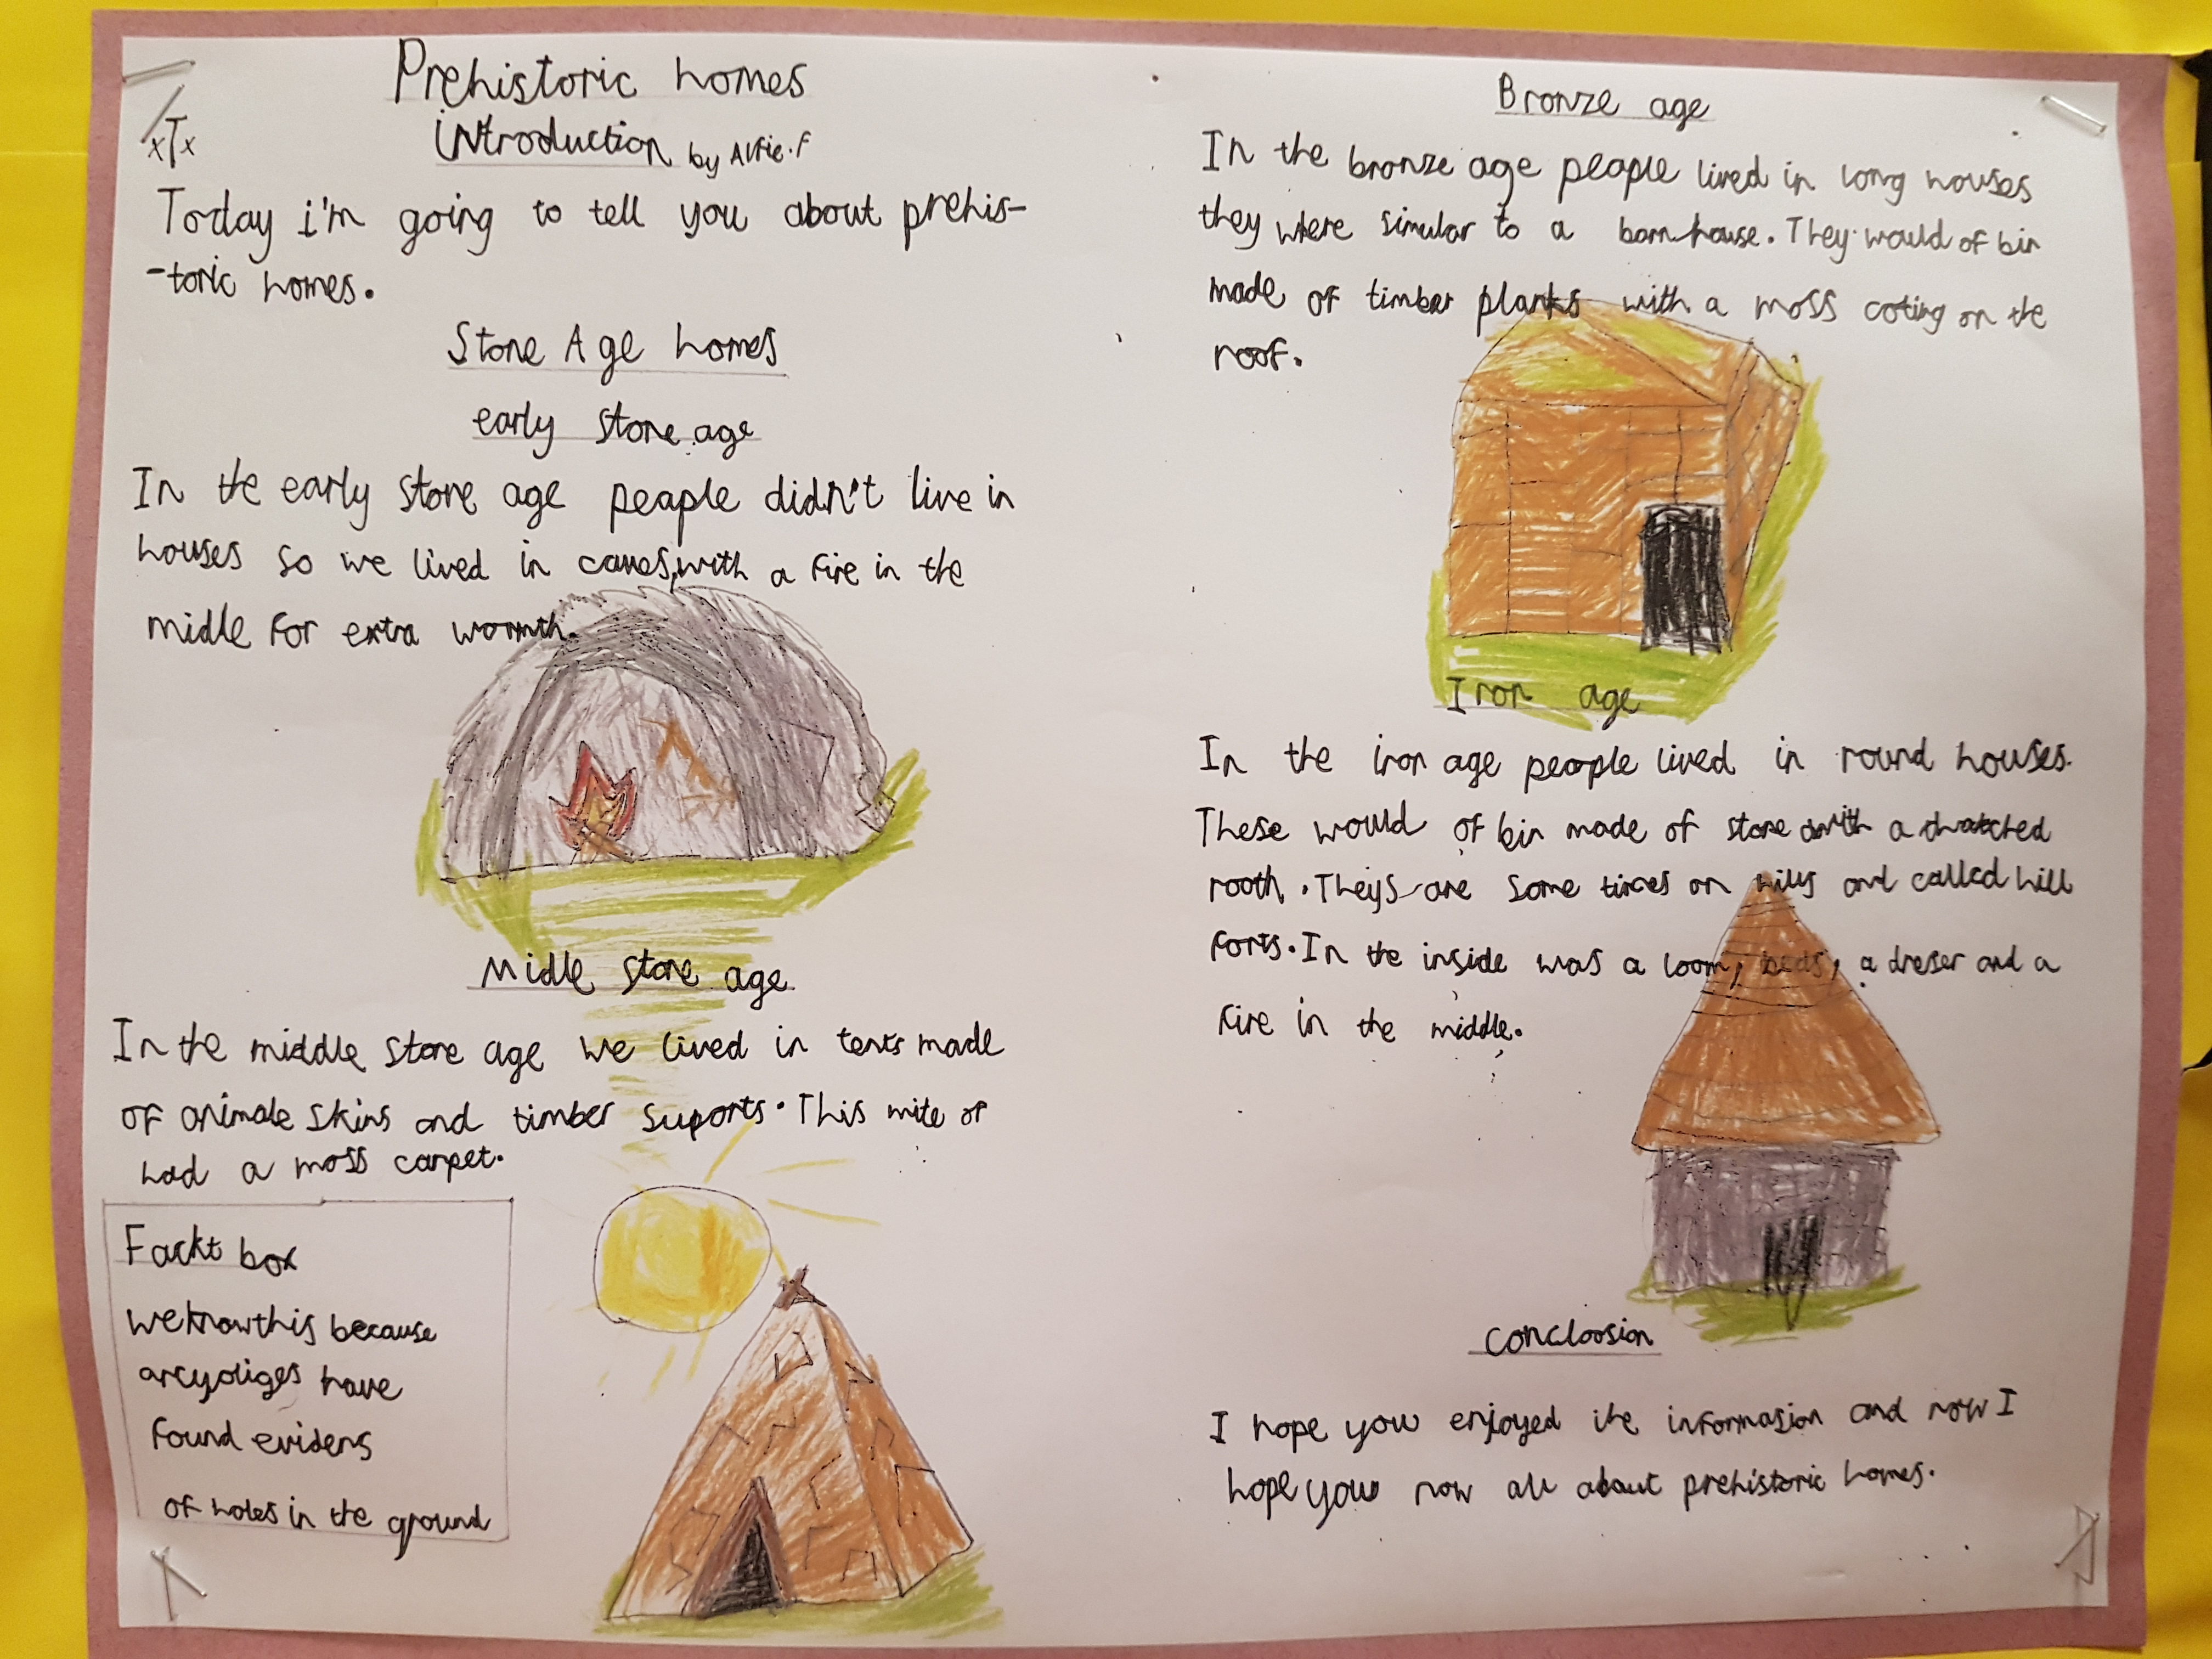 Prehistoric homes
introduction by Alfie.F
xTx
Today i'm going to tell you about prehis-
-toric homes.
Stone Age homes
early stone age
In the early stone age peaple didn't live in
houses so we lived in caves, with a fire in the
midle for extra wormth.
Midle stone age
In the middle stone age we lived in tents made
of animale skins and timber suports. This mite of
had a moss carpet.
Fackt box
we know this because
arcyoliges have
found evidens
of holes in the ground
Bronze age
In the bronze age people lived in long houses
they where simular to a barn house. They would of bin
made of timber planks with a moss coting on the
roof.
Iron age
In the iron age people lived in round houses.
These would of bin made of stone with a thatched
rooth. Theys are some times on hills and called hill
forts. In the inside was a loom, beds, a dreser and a
fire in the middle.
concloosion
I hope you enjoyed the informasion and now I
hope you now all about prehistoric homes.